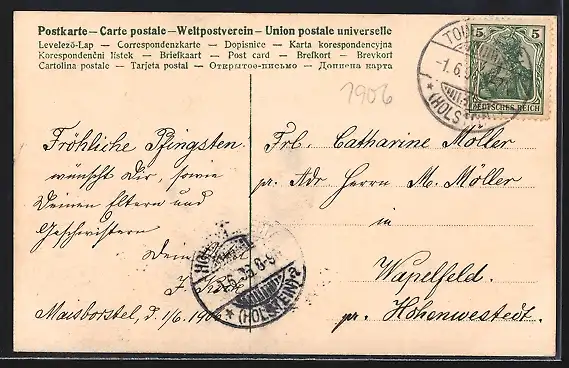 Postkarte — Carte postale — Weltpostverein — Union postale universelle
Levelező-Lap — Correspondenzkarte — Dopisnice — Karta korespondencyjna
Korespondenční lístek — Briefkaart — Post card — Brefkort — Brevkort
Cartolina postale — Tarjeta postal — Открытое-письмо — Дописна карта
5 5
DEUTSCHES REICH
-1.6.
(HOLSTEIN)
1906
Fröhliche Pfingsten
wünscht Dir, sowie
Deinen Eltern und
Geschwistern
Dein
Maisborstel, d. 1/6. 1906
Frl. Catharine Möller
pr. Adr Herrn M. Möller
in
Wapelfeld.
pr. Hohenwestedt.
(HOLSTEIN)